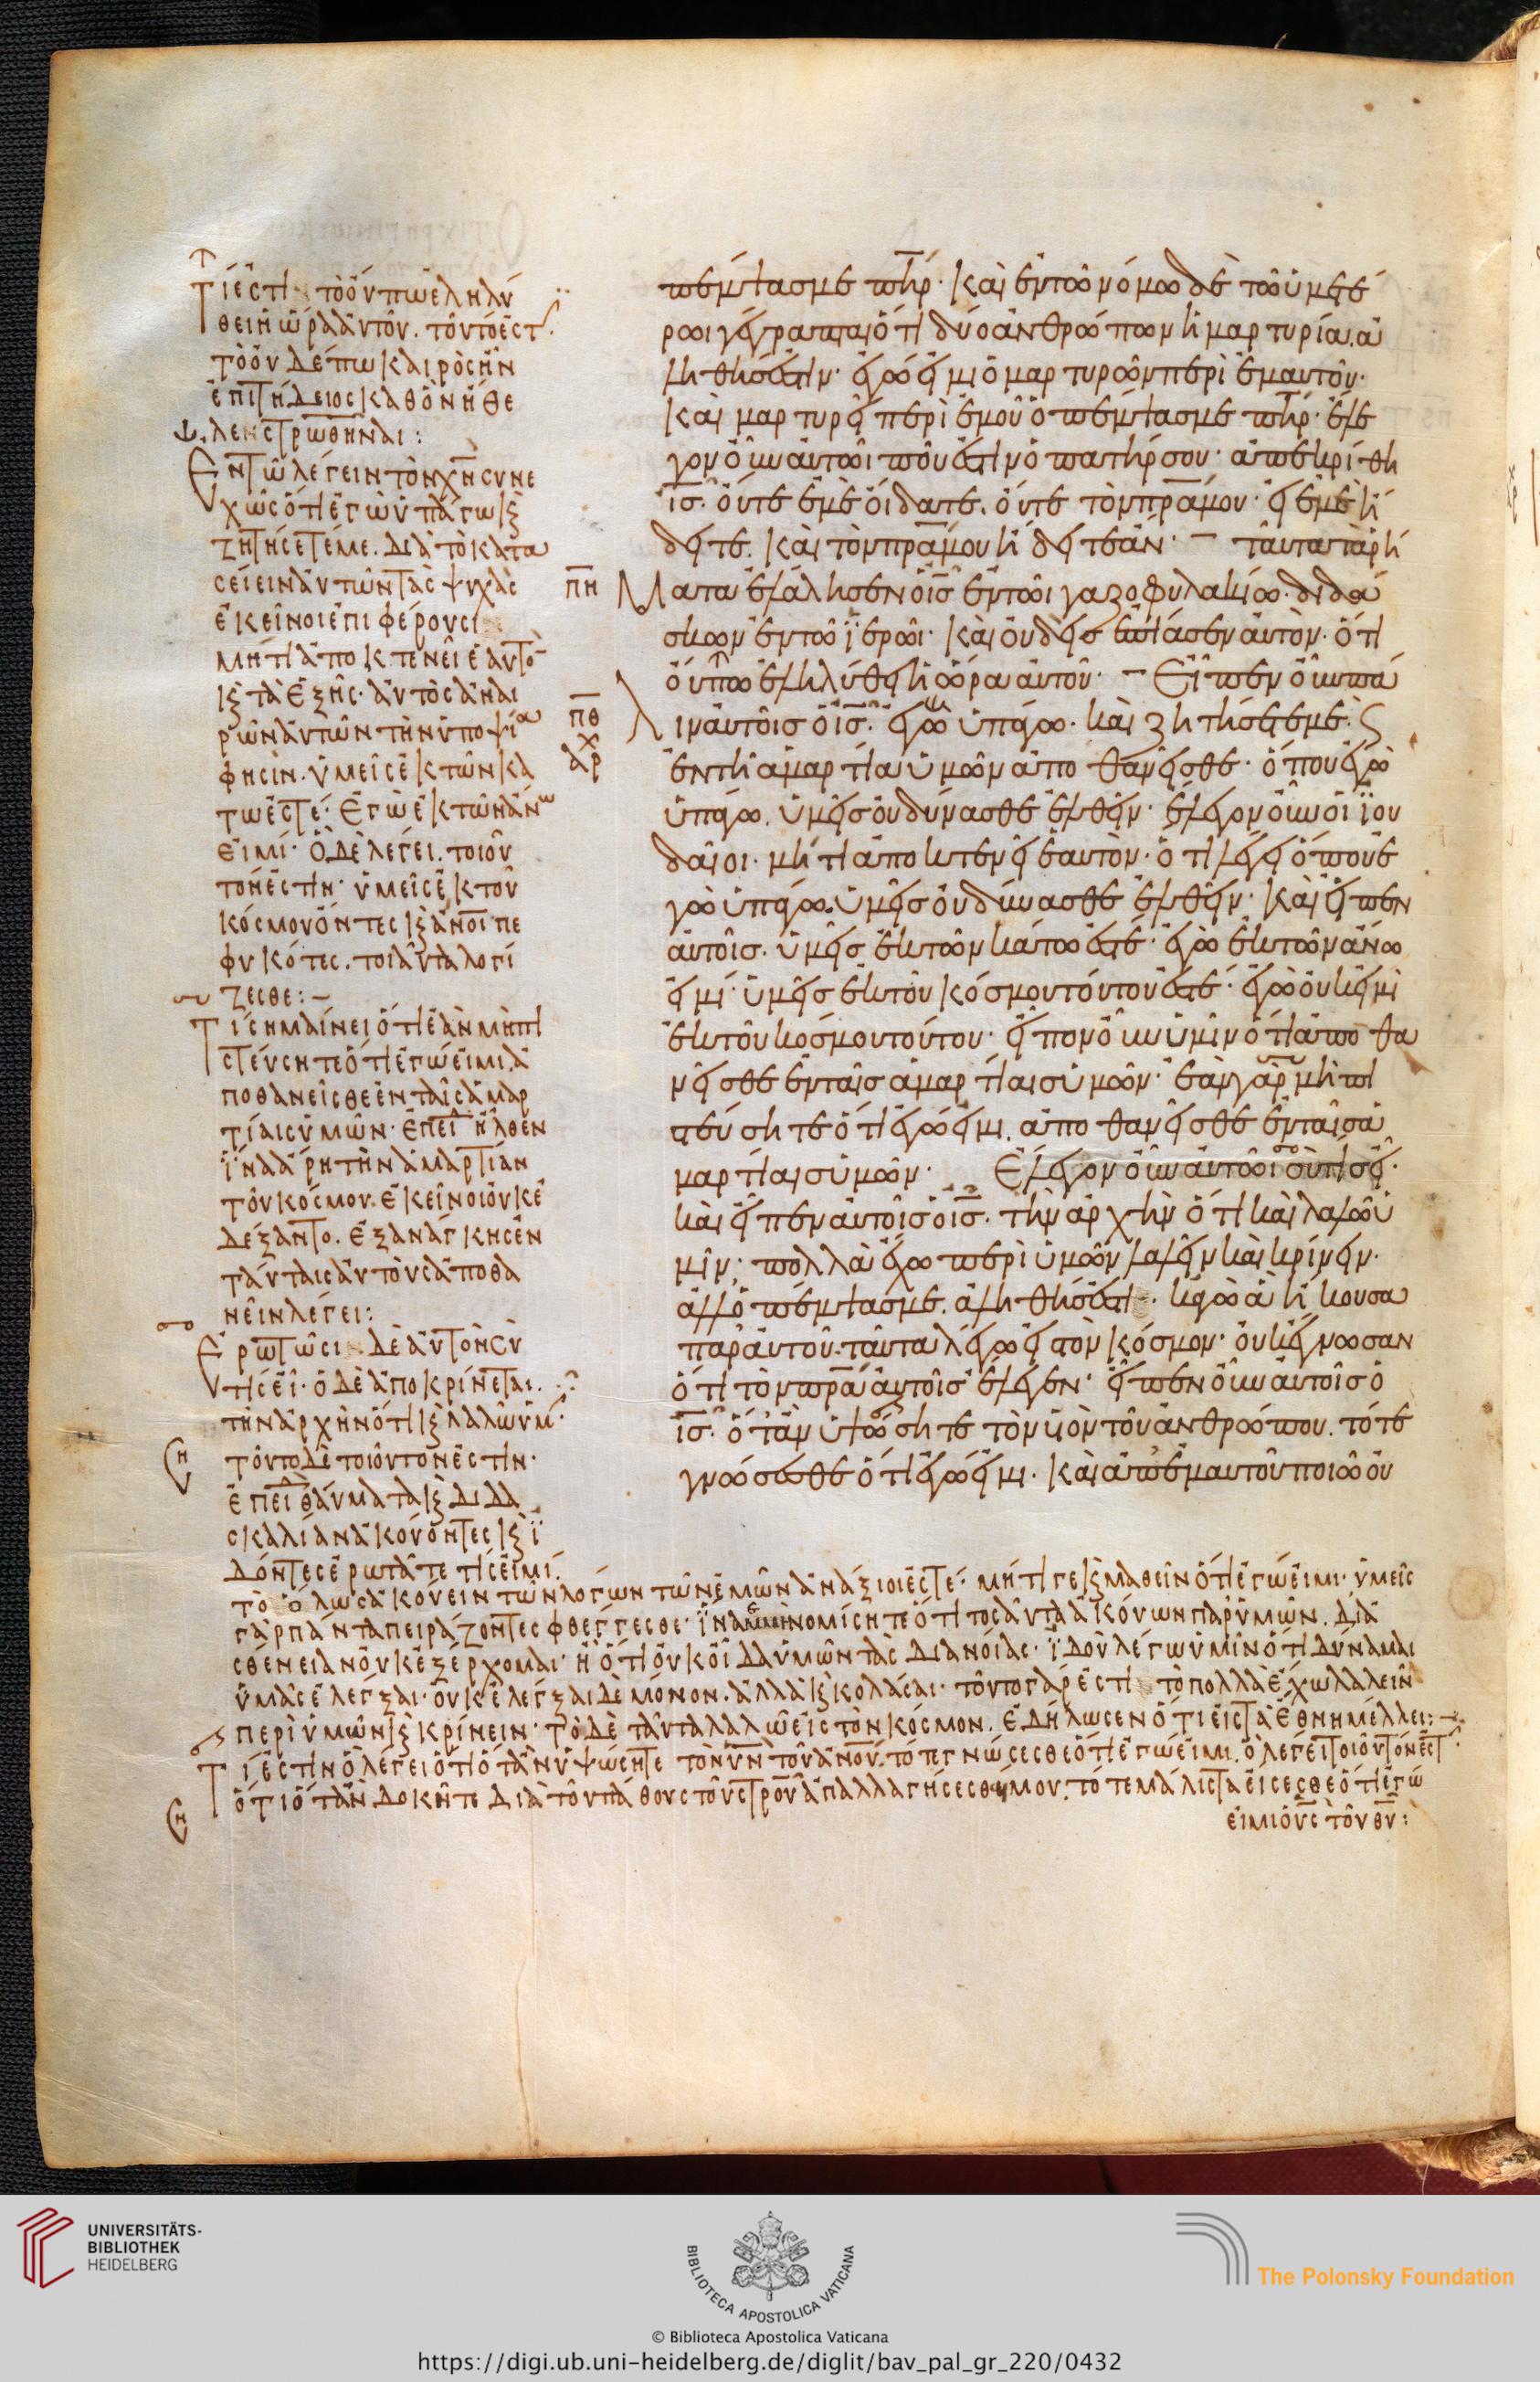 Τί ἐστι τὸ οὔπω ἐληλύ
θει ἡ ὥρα αὐτοῦ. τουτέστ
τὸ οὐδέπω καιρὸς ἦν
ἐπιτήδειος καθ ὃν ἤθε
λεν στρωθῆναι:
Ἐν τῷ λέγειν τὸν χν συνε
χῶς ὅτι ἐγὼ ὑπάγω κ
ζητήσετέ με. διὰ τὸ κατα
σείειν αὐτῶν τὰς ψυχὰς
ἐκεῖνοι ἐπιφέρουσι
μήτι ἀποκτενεῖ ἑαυτὸ
κ τὰ ἑξῆς. αὐτὸς ἀναι
ρῶν αὐτῶν τὴν ὑποψία
φησίν. ὑμεῖς ἐκ τῶν κά
τω ἐστέ. Ἐγὼ ἐκ τῶν ἄνω
εἰμί. Ὃ δὲ λέγει. τοιοῦ
τον ἐστιν. ὑμεῖς ἐκ τοῦ
κόσμου ὄντες κ ἀνοι πε
φυκότες. τοιαῦτα λογί
ζεσθε:
Τί σημαίνει ὅτι ἐὰν μὴ πι
στεύσητε ὅτι ἐγώ εἰμι. ἀ
ποθανεῖσθε ἐν ταῖς ἁμαρ
τίαις ὑμῶν. Ἐπεὶ ἦλθεν
ἵνα ἄρῃ τὴν ἁμαρτίαν
τοῦ κόσμου. ἐκεῖνοι οὐκ ἐ
δέξαντο. ἐξ ἀνάγκης ἐν
ταύταις αὐτοὺς ἀποθα
νεῖν λέγει:
Ἐρωτῶσι δὲ αὐτὸν σὺ
τίς εἶ. ὁ δὲ ἀποκρίνεται.
τὴν ἀρχὴν ὅτι κ λαλῶ ὑμ
τοῦτο δὲ τοιοῦτον ἐστιν.
ἐπεὶ θαύματα κ διδα
σκαλίαν ἀκούοντες κ ἰ
δόντες ἐρωτᾶτε τίς εἰμί.
τὸ ὅλως ἀκούειν τῶν λόγων τῶν ἐμῶν ἀνάξιοί ἐστέ. μήτι γε κ μαθεῖν ὅτι ἐγώ εἰμι. ὑμεῖς
γὰρ πάντα πειράζοντες φθέγγεσθε. ἵνα νομίσητε ὅτι τοσαῦτα ἀκούων παρ ὑμῶν. δι ἀ
σθένειαν οὐκ ἐξέρχομαι. ἢ ὅτι οὐκ οἶδα ὑμῶν τὰς διανοίας. ἰδοὺ λέγω ὑμῖν ὅτι δύναμαι
ὑμᾶς ἐλέγξαι. οὐκ ἐλέγξαι δὲ μόνον. ἀλλὰ κ κολάσαι. τοῦτο γάρ ἐστι τὸ πολλὰ ἔχω λαλεῖν
περὶ ὑμῶν κ κρίνειν. τὸ δὲ ταῦτα λαλῶ εἰς τὸν κόσμον. ἐδήλωσεν ὅτι εἰς τὰ ἔθνη μέλλει:
Τί ἐστιν ὃ λέγει ὅτι ὅταν ὑψώσητε τὸν υν τοῦ ανου. τότε γνώσεσθε ὅτι ἐγώ εἰμι. ὃ λέγει τοιοῦτόν ἐστ
ὅτι ὅταν δοκῆτε διὰ τοῦ πάθους τοῦ στρου ἀπαλλαγήσεσθέ μου. τότε μάλιστα εἴσεσθε ὅτι ἐγώ
εἰμι ὁ υς τοῦ θυ:
πέμψας με πηρ. καὶ ἐν τῷ νόμω δὲ τῶ ὑμετέ
ρωι γέγραπται ὅτι δύο ἀνθρώπων ἡ μαρτυρία. ἀ
ληθής ἐστιν. ἐγώ εἰμι ὁ μαρτυρῶν περὶ ἐμαυτοῦ.
καὶ μαρτυρεῖ περὶ ἐμοῦ ὁ πέμψας με πηρ. ἔλε
γον οὖν αὐτῶι ποῦ ἐστιν ὁ πατήρ σου. ἀπεκρίθη
ις. οὔτε ἐμὲ οἴδατε. οὔτε τὸν πρα μου. εἰ ἐμὲ ἤ
δειτε. καὶ τὸν πρα μου ἤδειτε ἄν. ταῦτα τὰ ρή
πη Ματα ἐλάλησεν ὁ ις ἐν τῶι γαζοφυλακίω. διδά
σκων ἐν τῶ ἱερῶι. καὶ οὐδεὶς ἐπίασεν αὐτόν. ὅτι
οὔπω ἐληλύθει ἡ ὥρα αὐτοῦ. Εἶπεν οὖν πά
πθ Λιν αὐτοῖς ὁ ις. ἐγὼ ὑπάγω. καὶ ζητήσετέ με.
ἐν τῆ ἁμαρτία ὑμῶν ἀποθανεῖσθε. ὅπου ἐγὼ
ὑπάγω. ὑμεῖς οὐ δύνασθε ἐλθεῖν. ἔλεγον οὖν οἱ ἰου
δαῖοι. μήτι ἀποκτενεῖ ἑαυτὸν. ὅτι λέγει ὅπου ἐ
γὼ ὑπάγω. ὑμεῖς οὐ δύνασθε ἐλθεῖν. καὶ εἶπεν
αὐτοῖς. ὑμεῖς ἐκ τῶν κάτω ἐστέ. ἐγὼ ἐκ τῶν ἄνω
εἰμί. ὑμεῖς ἐκ τοῦ κόσμου τούτου ἐστέ. ἐγὼ οὐκ εἰμὶ
ἐκ τοῦ κόσμου τούτου. εἶπον οὖν ὑμῖν ὅτι ἀποθα
νεῖσθε ἐν ταῖς ἁμαρτίαις ὑμῶν. ἐὰν γὰρ μὴ πι
στεύσητε ὅτι ἐγώ εἰμι. ἀποθανεῖσθε ἐν ταῖς ἁ
μαρτίαις ὑμῶν. Ἔλεγον οὖν αὐτῶι σὺ τίς εἶ.
καὶ εἶπεν αὐτοῖς ὁ ις. τὴν ἀρχὴν ὅτι καὶ λαλῶ ὑ
μῖν. πολλὰ ἔχω περὶ ὑμῶν λαλεῖν καὶ κρίνειν.
ἀλλ ὁ πέμψας με. ἀληθής ἐστι. κἀγὼ ἃ ἤκουσα
παρ αὐτοῦ. ταῦτα λέγω εἰς τὸν κόσμον. οὐκ ἔγνωσαν
ὅτι τὸν πρα αὐτοῖς ἔλεγεν. εἶπεν οὖν αὐτοῖς ὁ
ις. ὅταν ὑψώσητε τὸν υἱὸν τοῦ ἀνθρώπου. τότε
γνώσεσθε ὅτι ἐγώ εἰμι. καὶ ἀπ ἐμαυτοῦ ποιῶ οὐ
UNIVERSITÄTS-
BIBLIOTHEK
HEIDELBERG
BIBLIOTECA APOSTOLICA VATICANA
The Polonsky Foundation
© Biblioteca Apostolica Vaticana
https://digi.ub.uni-heidelberg.de/diglit/bav_pal_gr_220/0432